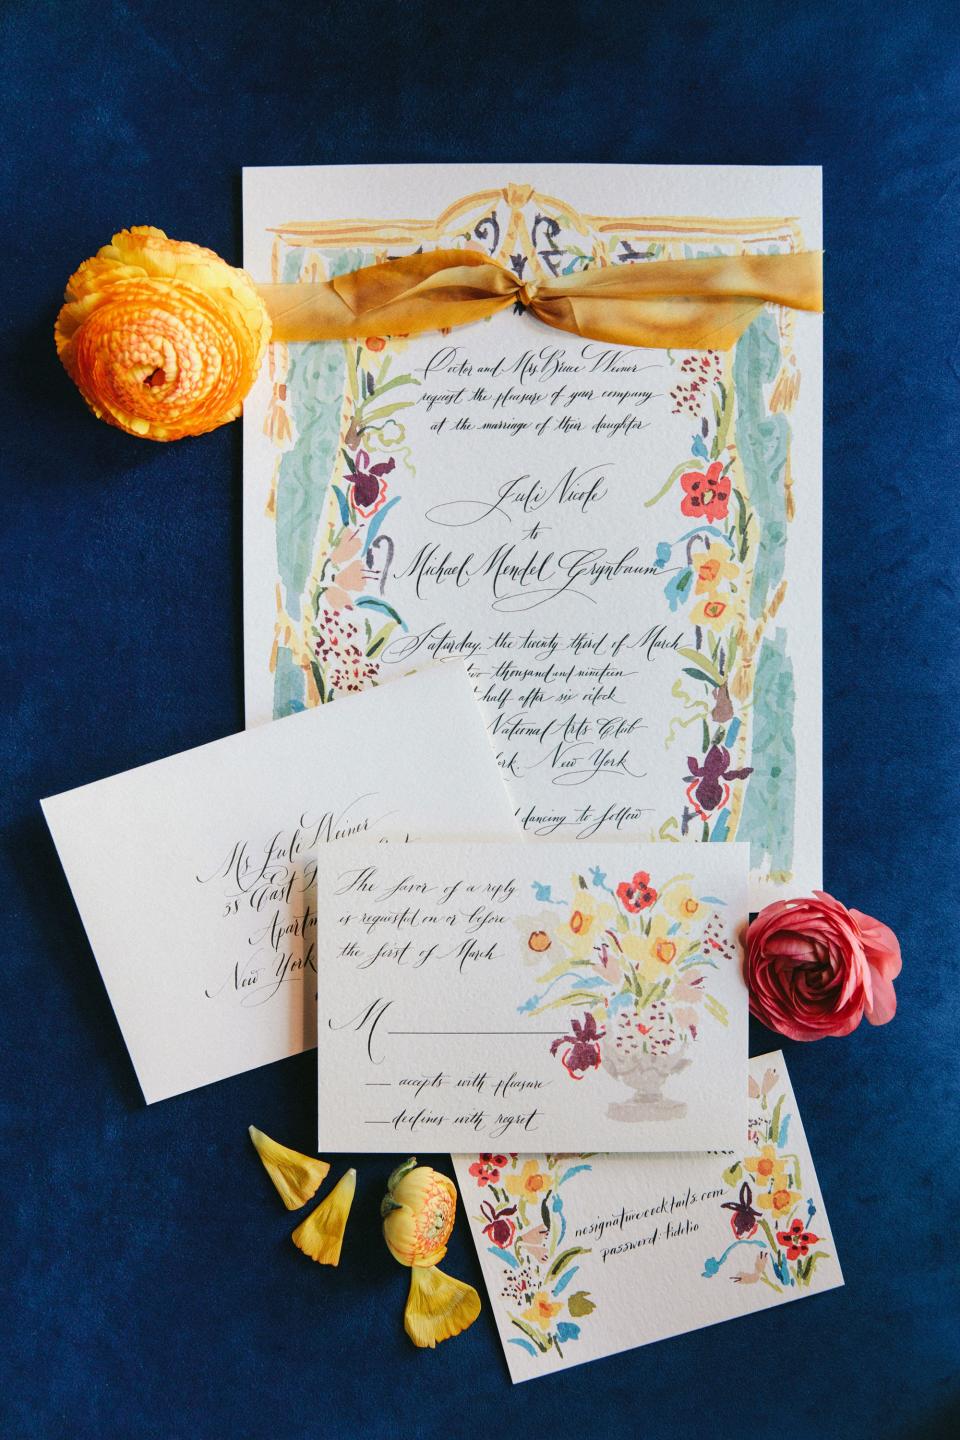 Doctor and Mrs. Bruce Weiner
request the pleasure of your company
at the marriage of their daughter
Juli Nicole
to
Michael Mendel Grynbaum
Saturday, the twenty third of March
two thousand and nineteen
half after six o'clock
National Arts Club
New York
dancing to follow
Ms. Juli Weiner
38 East
New York
The favor of a reply
is requested on or before
the first of March
M
accepts with pleasure
declines with regret
nosignaturecocktails.com
password: fidelio